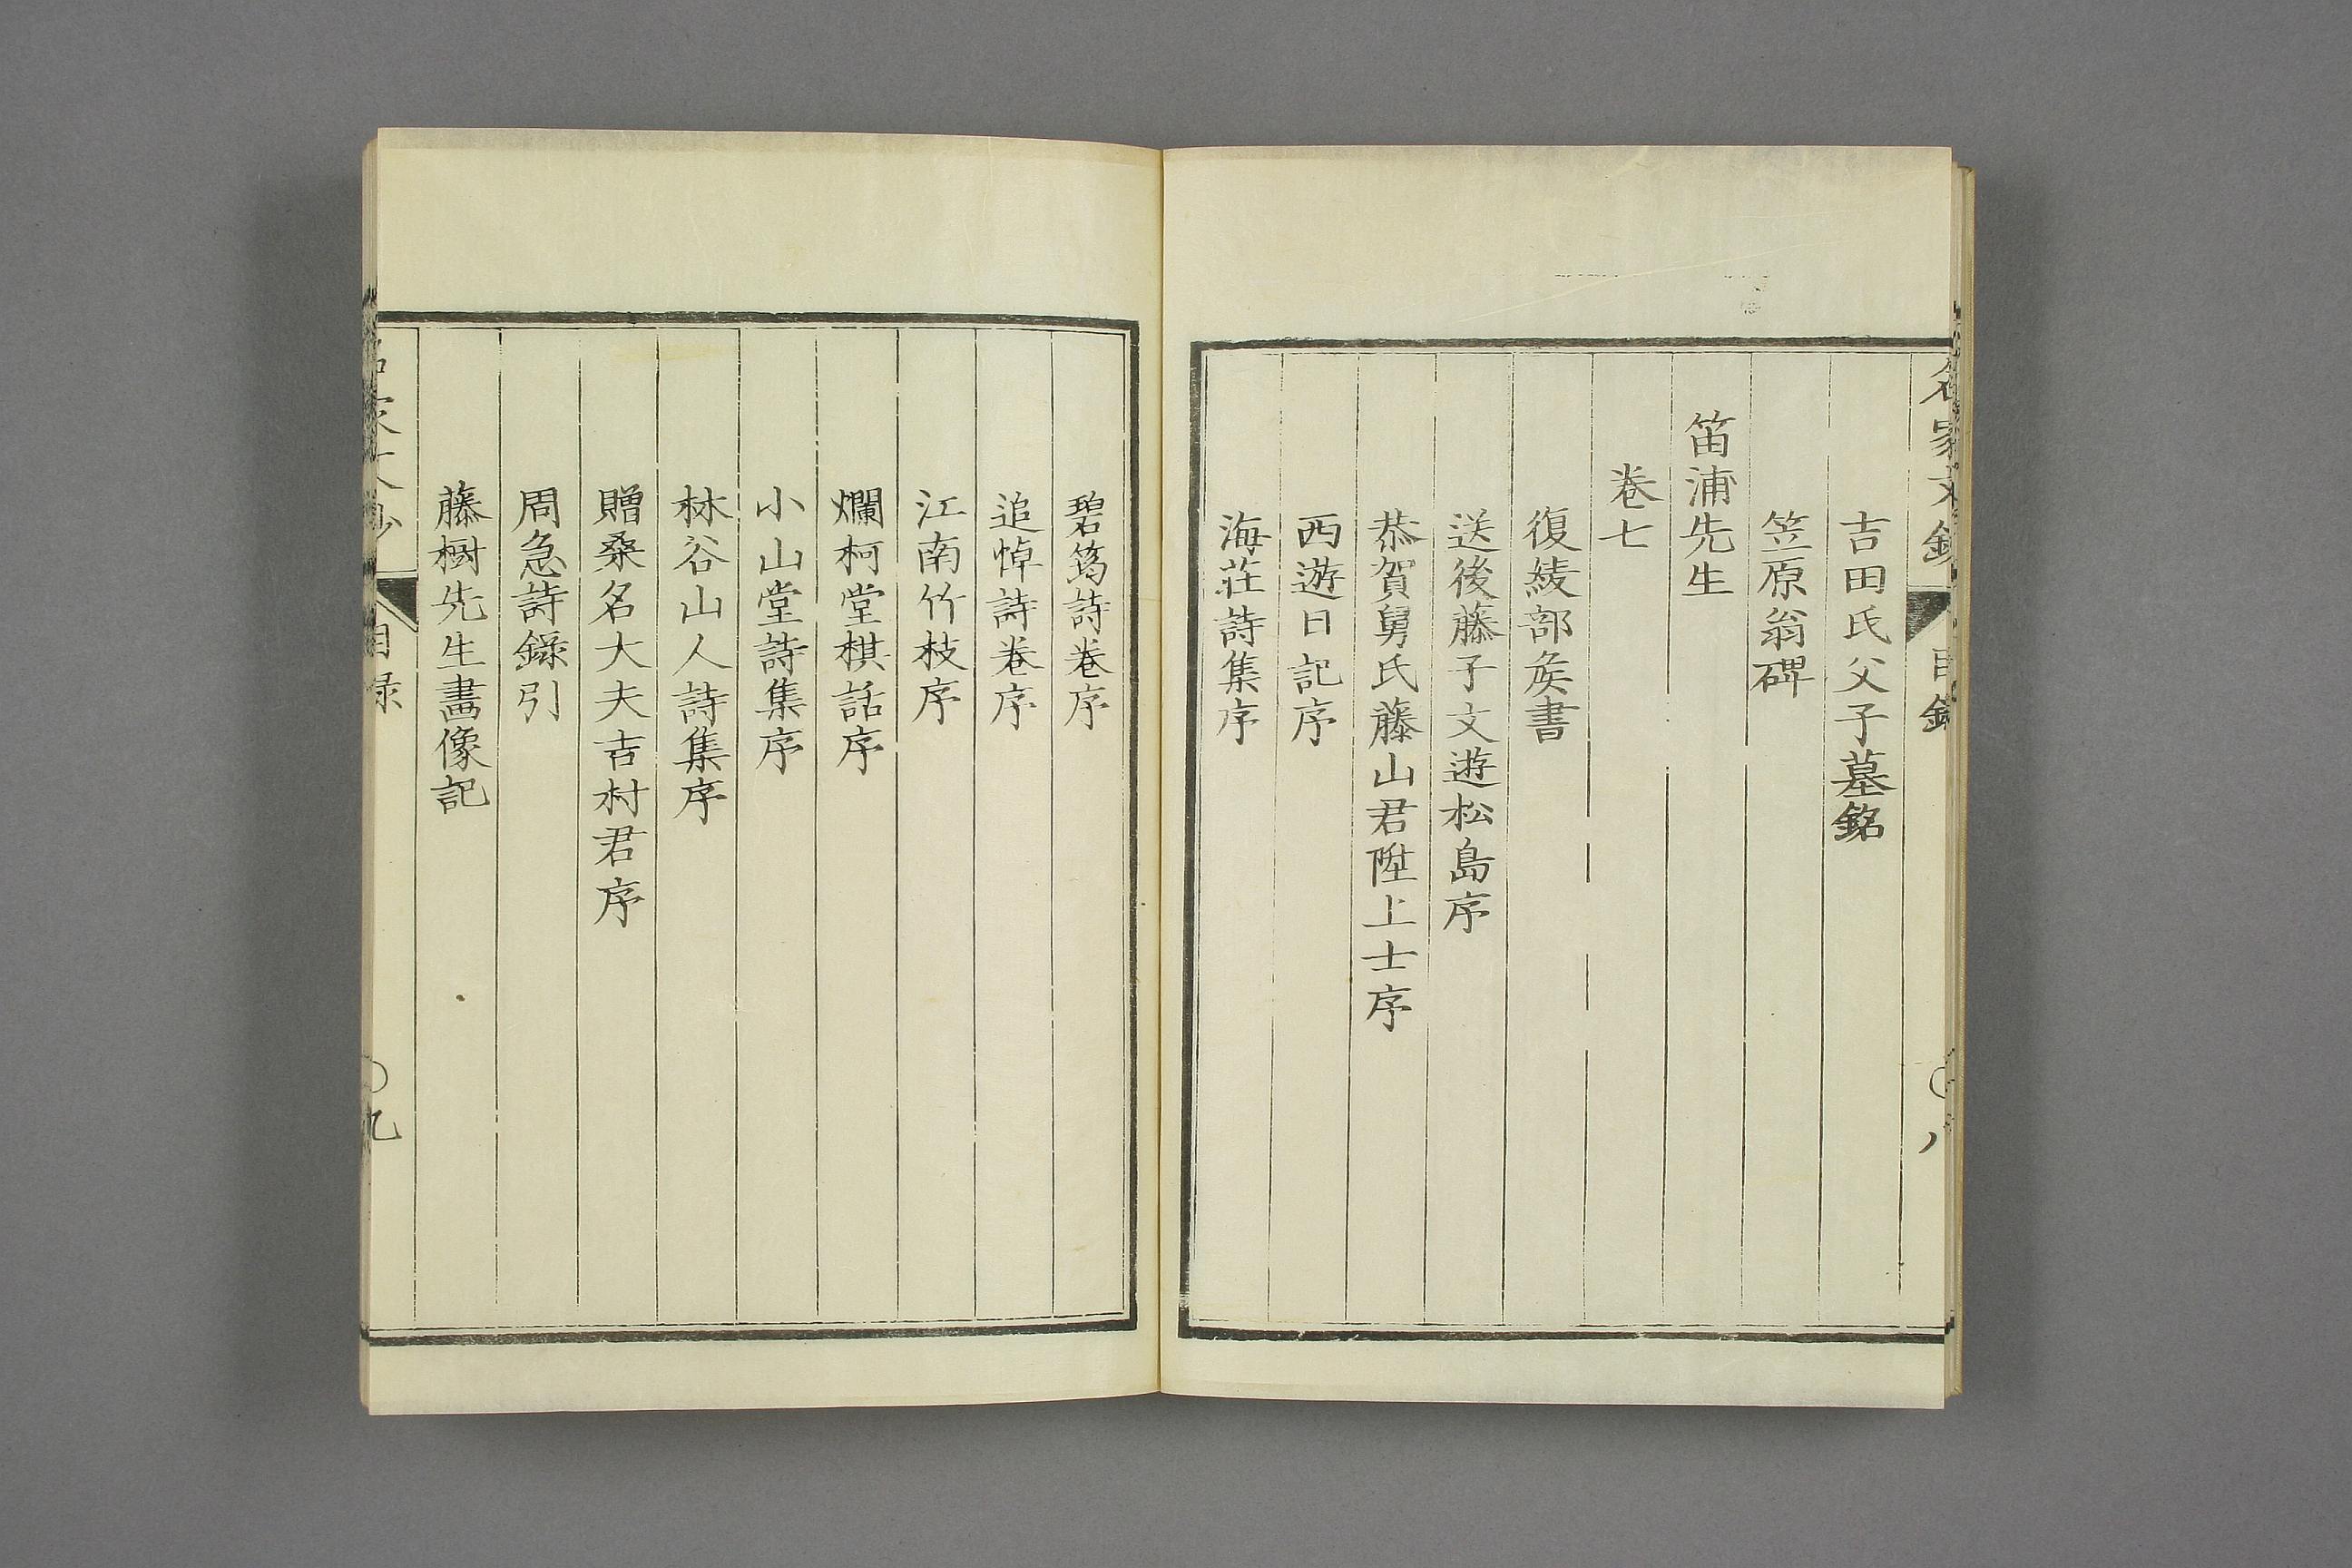 吉田氏父子墓銘
笠原翁碑
笛浦先生
卷七
復綾部矦書
送後藤子文遊松島序
恭賀舅氏藤山君陞上士序
西遊日記序
海莊詩集序
碧筠詩卷序
追悼詩卷序
江南竹枝序
爛柯堂棋話序
小山堂詩集序
林谷山人詩集序
贈桑名大夫吉村君序
周急詩錄引
藤樹先生畫像記
目録
九